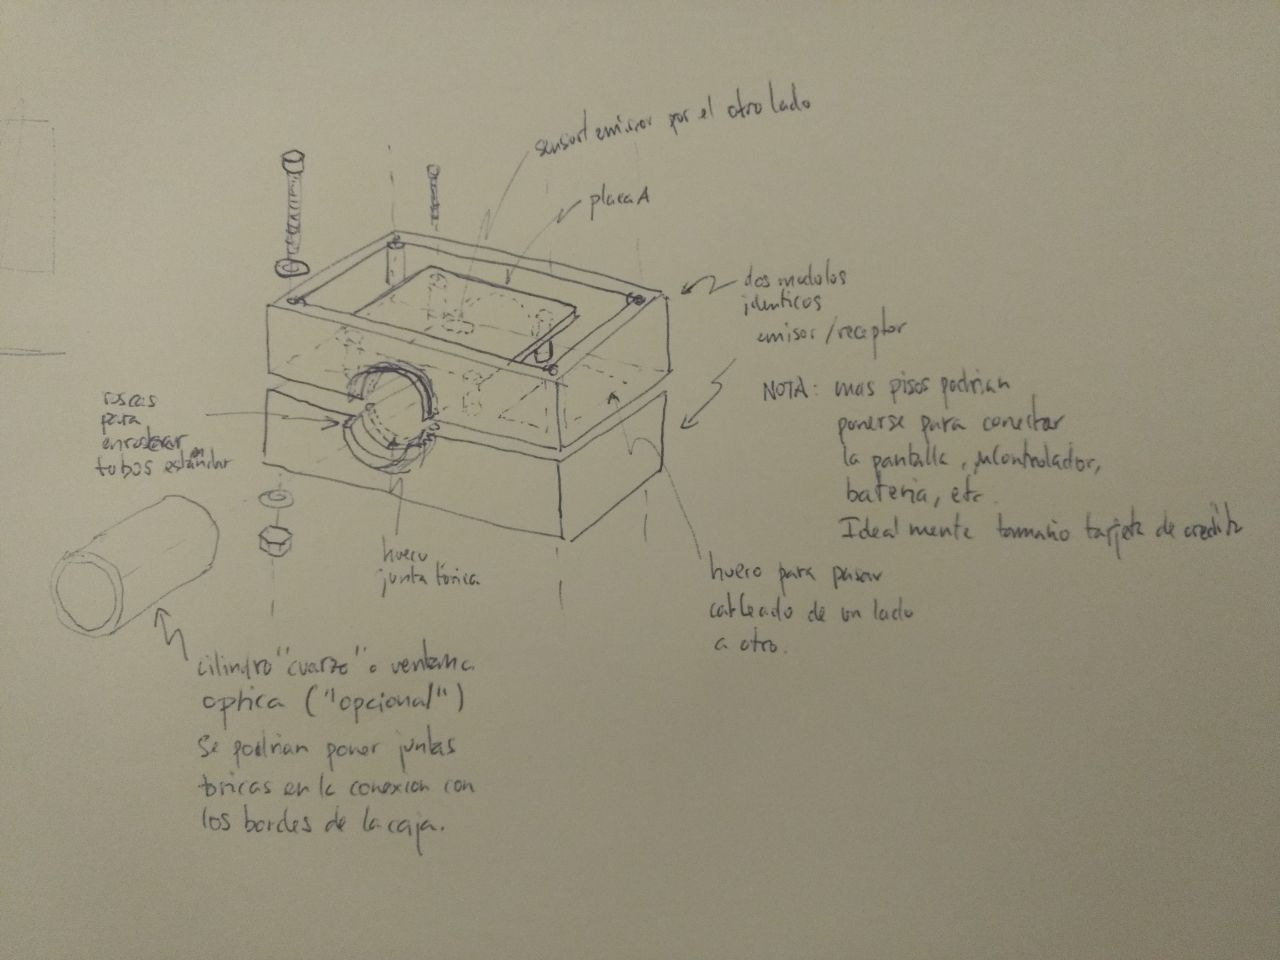 sensor/emisor por el otro lado
placa A
dos modulos
identicos
emisor/receptor
NOTA: mas pisos podrian
ponerse para conectar
la pantalla, µControlador,
bateria, etc.
Idealmente tamaño tarjeta de credito
roscas
para
enroscar
tubos estandar
hueco
junta torica
hueco para pasar
cableado de un lado
a otro.
cilindro "cuarzo" o ventana
optica ("opcional")
Se podrian poner juntas
toricas en la conexion con
los bordes de la caja.